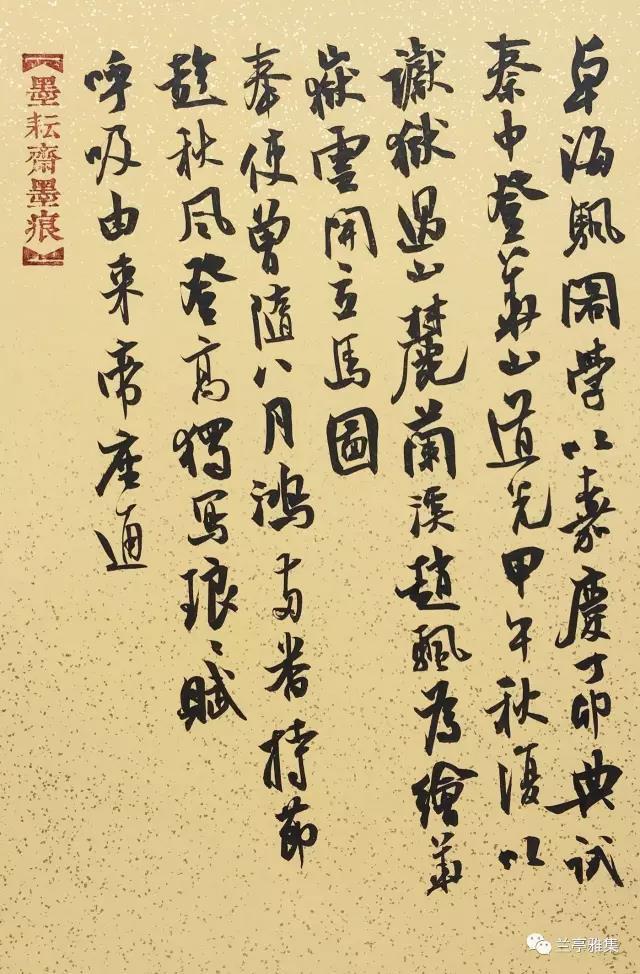 卓海颿閣學以嘉慶丁卯典試
秦中登華山道光甲午秋復以
讞獄過山麓蘭溪趙颿為繪華
嶽雲開立馬圖
奉使曾隨八月鴻看持節
趁秋風登高獨寫琅〻賦
呼吸由来帝座通
【墨耘齋墨痕】
兰亭雅集